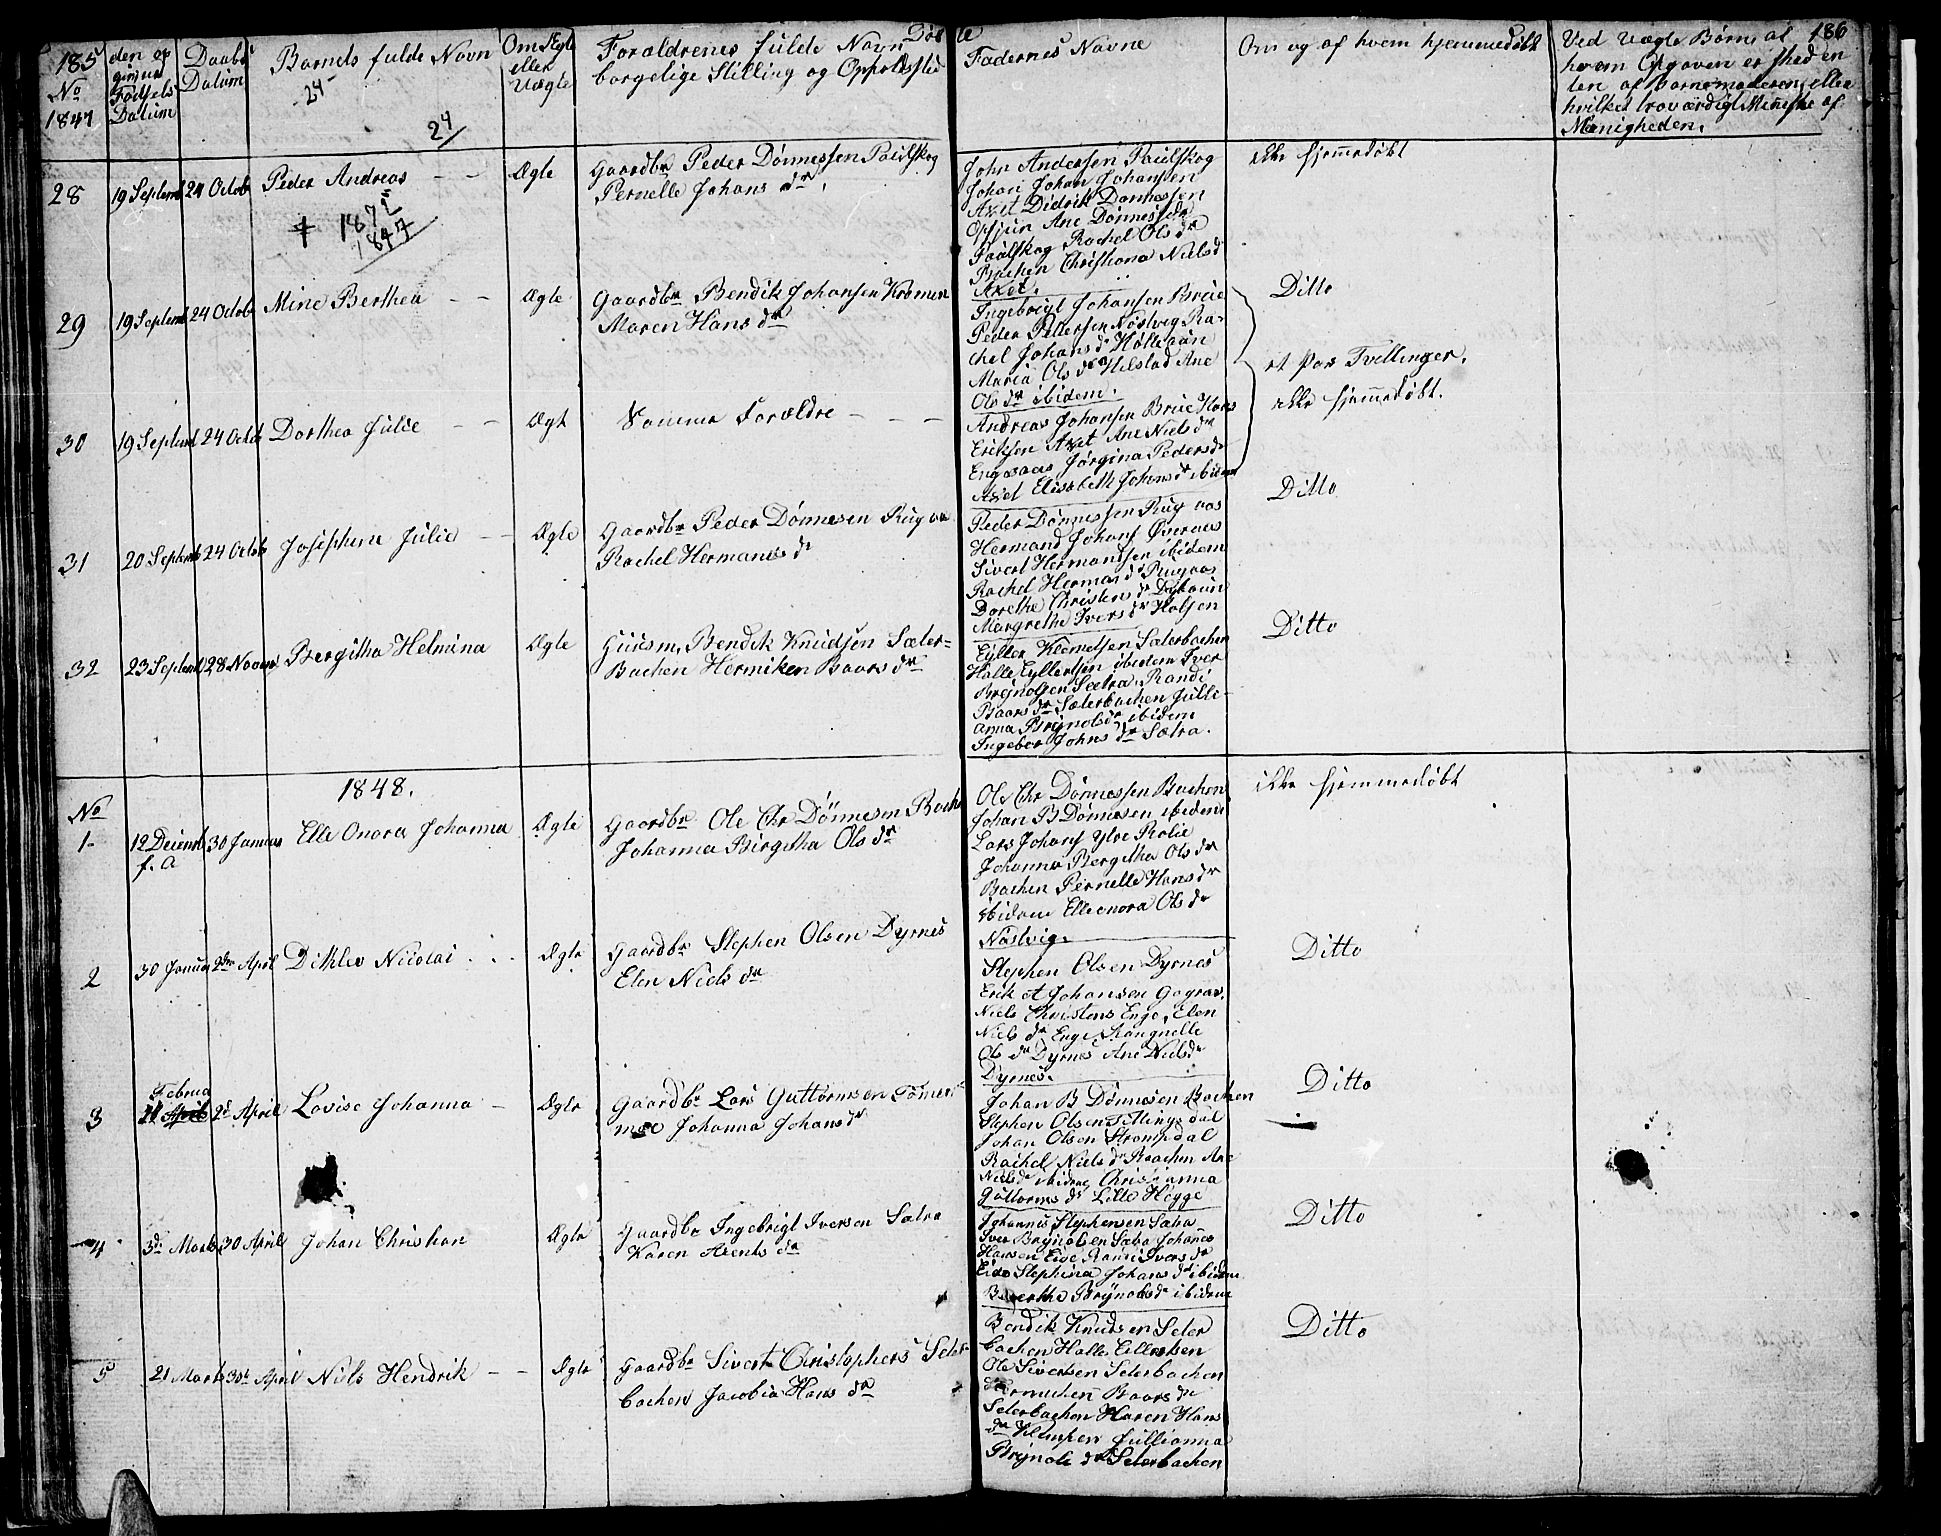 185
No
1847
den op
givne
Fødsels
Datum
Daabs
Datum
Barnets fulde Navn
24
24
Om Ægte
eller
Uægte
Forældrenes fulde Navn
borgelige Stilling og Opholdssted
Døbte
Fadernes Navne
Om og af hvem hjemmedøbt
Ved Uægte Børn, af
hvem Opgaven er skeden
ten af Barnemoderen, eller
hvilket troværdigt Menniske af
Menigheden.
186
28
19 Septemb
24 Octob
Peder Andreas
1872
1847
Ægte
Gaardbr Peder Dønnessen Paulskog
Pernelle Johans dr
John Andersen Paulskog
Johan Johan Johansen
Axet Didrik Dønnessen
Opsjün Ane Dønnesdr
Paalskog Rachel Ols dr
Bachen Christiana Niels d
Axet.
ikke hjemmedøbt
29
19 Septemb
24 Octob
Mine Berthea
Ægte
Gaardbr Bendik Johansen
Maren Hans dr
Ingebrigt Johansen Brue
Peder Pettersen Nøstvig Ra-
chel Johans dr
Maria Ols dr Hilstad Ane
Ols dr ibidem.
Ditto
et Par Tvillinger.
30
19 Septemb
24 Octob
Dorthea Julie
Ægt
Samme Forældre
Andreas Johansen Brue Hans
Eriksen Axet Ane Niels dr
Engaaas Jørgina Peders dr
Axet Elisabeth Johans dr ibidem
ikke hjemmedøbt.
31
20 Septemb
24 Octob
Josephine Julie
Ægte
Gaardbr Peder Dønnesen Rugaa
Rachel Hermans dr
Peder Dønnessen Rugaas
Hermand Johans Øveraas
Sivert Hermandsen ibidem
Rachel Hermans dr Rugaas
Dorethe Christens dr
Margrethe Ivers dr Holsen
Ditto
32
23 Septemb
28 Novem
Bergitha Helmina
Ægte
Huusm. Bendik Knudsen Sæter-
Bachen Hermiken Baars dr
Eyller Klemetsen Sæterbachen
Halle Eyllertsen ibidem Iver
Brynolsen Sætra, Randi
Baars dr Sæterbachen Julli-
anna Brynols dr ibidem
Ingebor Johns dr Sætra.
Ditto
1848.
No
1.
12 Decemb
f. A
30 Januar
Elle Onora Johanna
Ægte
Gaardbr Ole Chr Dønnesen Bache
Johanna Birgitha Ols dr
Ole Chr Dønnessen Bachen
Johan B Dønnesen ibidem
Lars Johans
Johanna Bergitha Ols dr
Bachen Pernelle Hans dr
ibidem Elleonora Ols dr
Nøstvig.
ikke hjemmedøbt
2
30 Januar
2den April
Ditlev Nicolai
Ægte
Gaardbr Stephen Olsen Dyrnes
Elen Niels dr
Stephen Olsen Dyrnes
Erik A Johansen
Niels Christens Enge, Elen
Niels dr Enge
Ols dr Dyrnes Ane Niels dr
Dyrnes.
Ditto
3
Februa
21 April
2d April
Lovise Johanna
Ægte
Gaardbr Lars Guttormsen Tømer
moe Johanna Johans dr
Johan B Dønnesen Bachen
Stephen Olsen Tittingsdal
Johan Olsen Strompdal
Rachel Niels dr Bachen Ane
Niels dr ibidem Christianna
Guttorms dr Lille Høgge
Ditto
4
3de Marts
30 April
Johan Christian
Ægte
Gaardbr Ingebrigt Iversen Sætra
Karen Arents dr
Johannis Stephensen Sætra
Iver Brynolsen Sætra Johanes
Hansen Eide, Ranni Ivers dr
Eide Stephina Johans dr ibidem
Berthe Brynols dr ibidem
Ditto
5
21 Marts
30 April
Niels Hendrik
Ægte
Gaardbr Sivert Christophers Seter
bachen Jacobia Hans dr
Bendik Knudsen Seter
bachen Halle Eillertsen
Ole Sivertsen Seterbachen
Hermichen Baars dr
Seterbachen Maren Hans
dr Klempen Jullianna
Brynols dr Seterbachen
Ditto